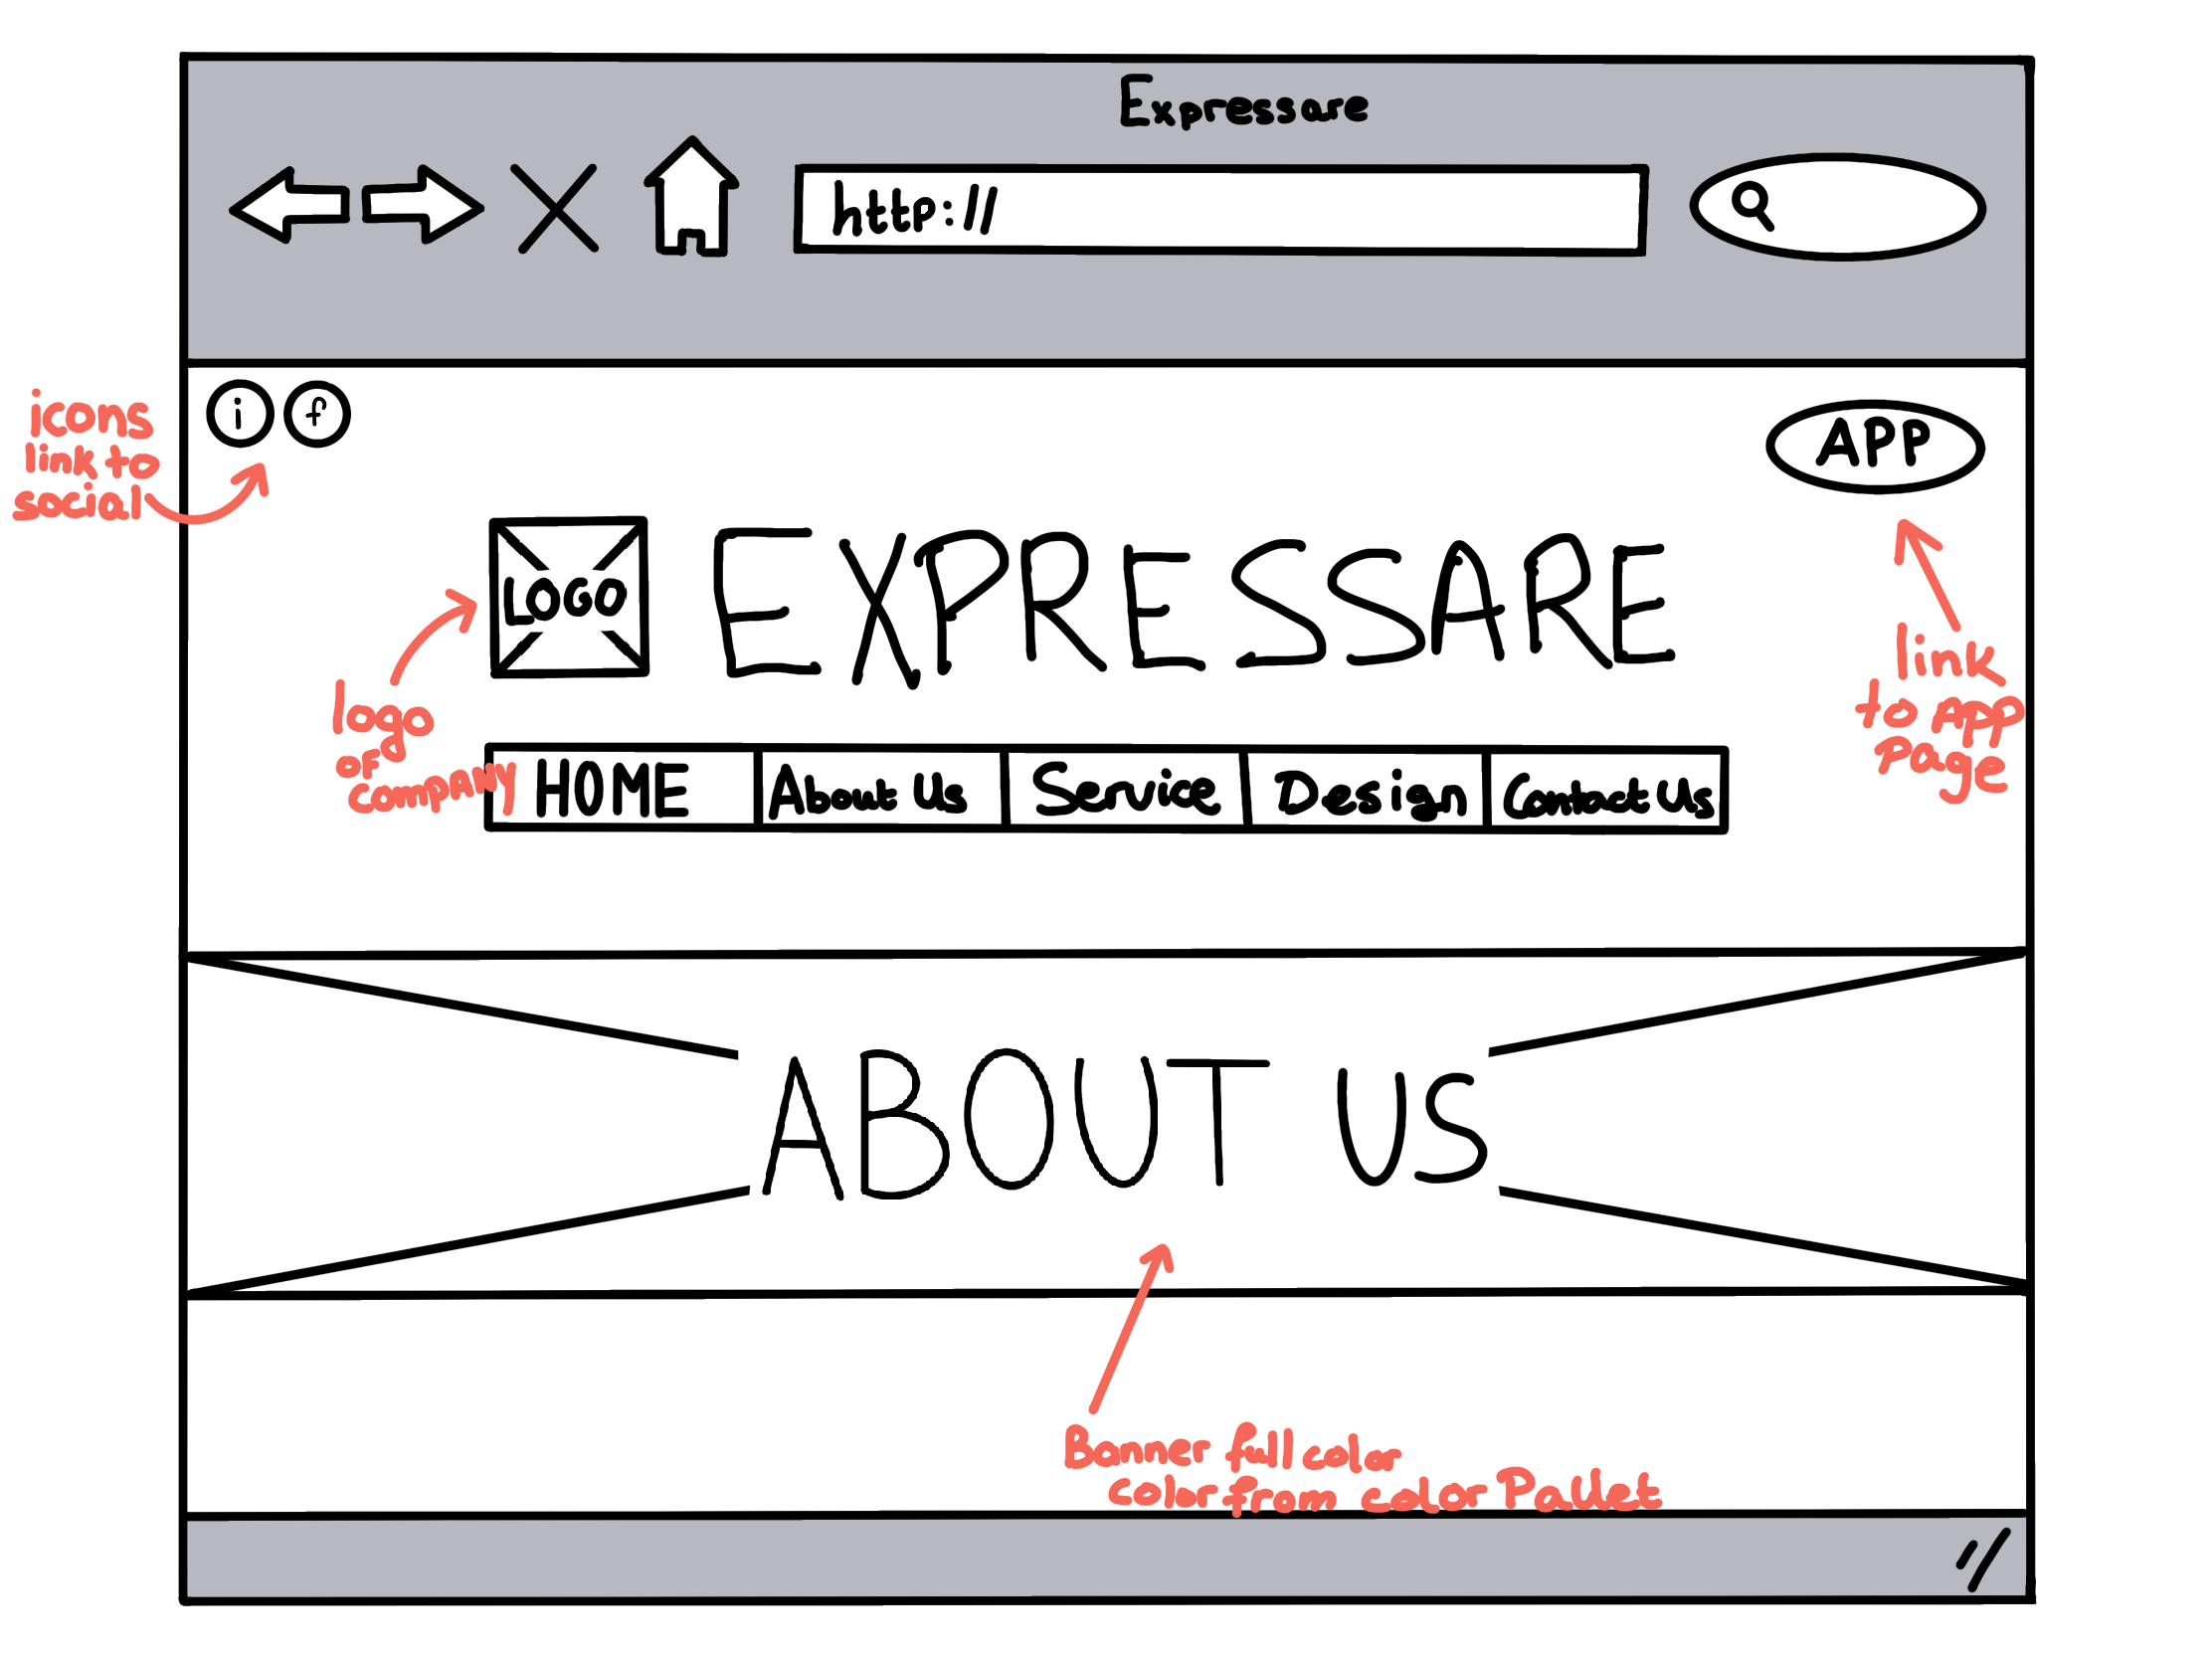 Expressare
http://
i f
APP
icons
link to
social
LOGO
EXPRESSARE
link
to App
Page
logo
of
company
HOME About Us Service Design Contact Us
ABOUT US
Banner full color
color from color Pallet